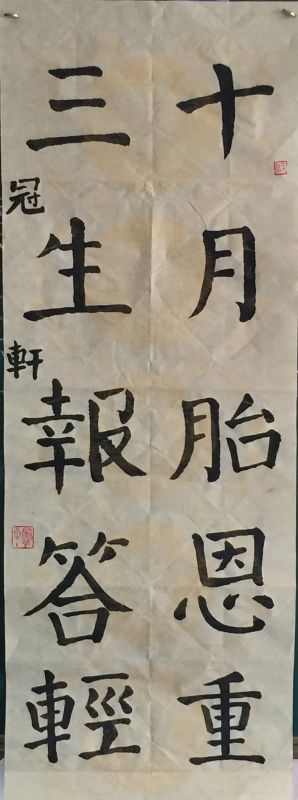 十月胎恩重
三生報答輕
冠軒